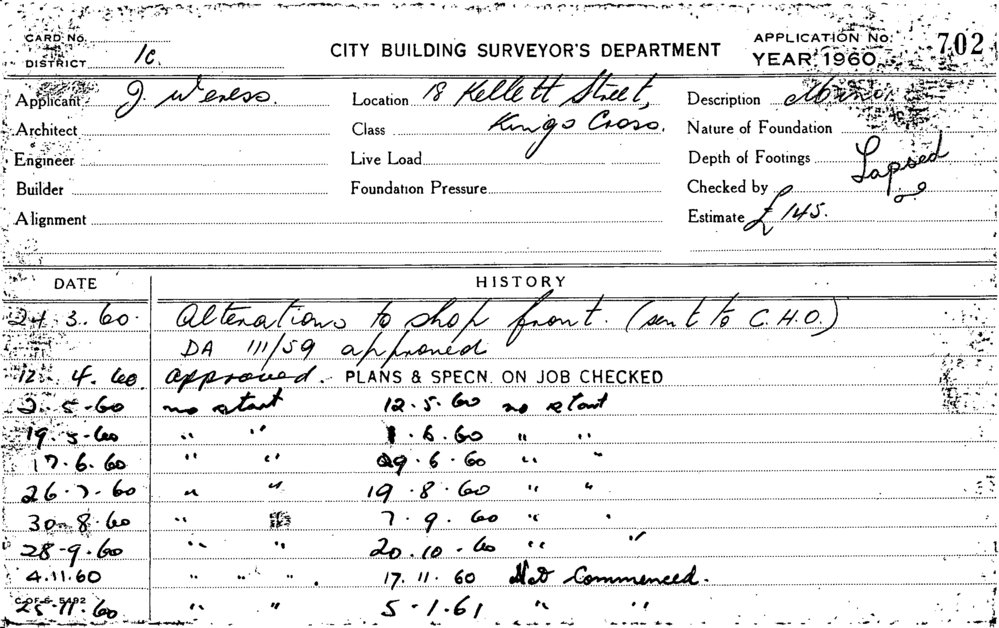 CARD No.
DISTRICT 1C.
CITY BUILDING SURVEYOR'S DEPARTMENT
APPLICATION No. 702
YEAR 1960
Applicant J. Weress.
Location 18 Kellett Street,
Description Minor
Architect
Class Kings Cross.
Nature of Foundation
Engineer
Live Load
Depth of Footings Lapsed
Builder
Foundation Pressure
Checked by
Alignment
Estimate £145.
DATE HISTORY
24.3.60. Alterations to shop front. (sent to C.H.O.)
DA 111/59 approved
12.4.60 approved. PLANS & SPECN. ON JOB CHECKED
2.5.60 no start 12.5.60 no start
19.5.60 " " 1.6.60 " "
17.6.60 " " 29.6.60 " "
26.7.60 " " 19.8.60 " "
30.8.60 " " 7.9.60 " "
28-9.60 " " 20.10.60 " "
4.11.60 " " " . 17.11.60 Not Commenced.
25.11.60 " " 5.1.61 " "